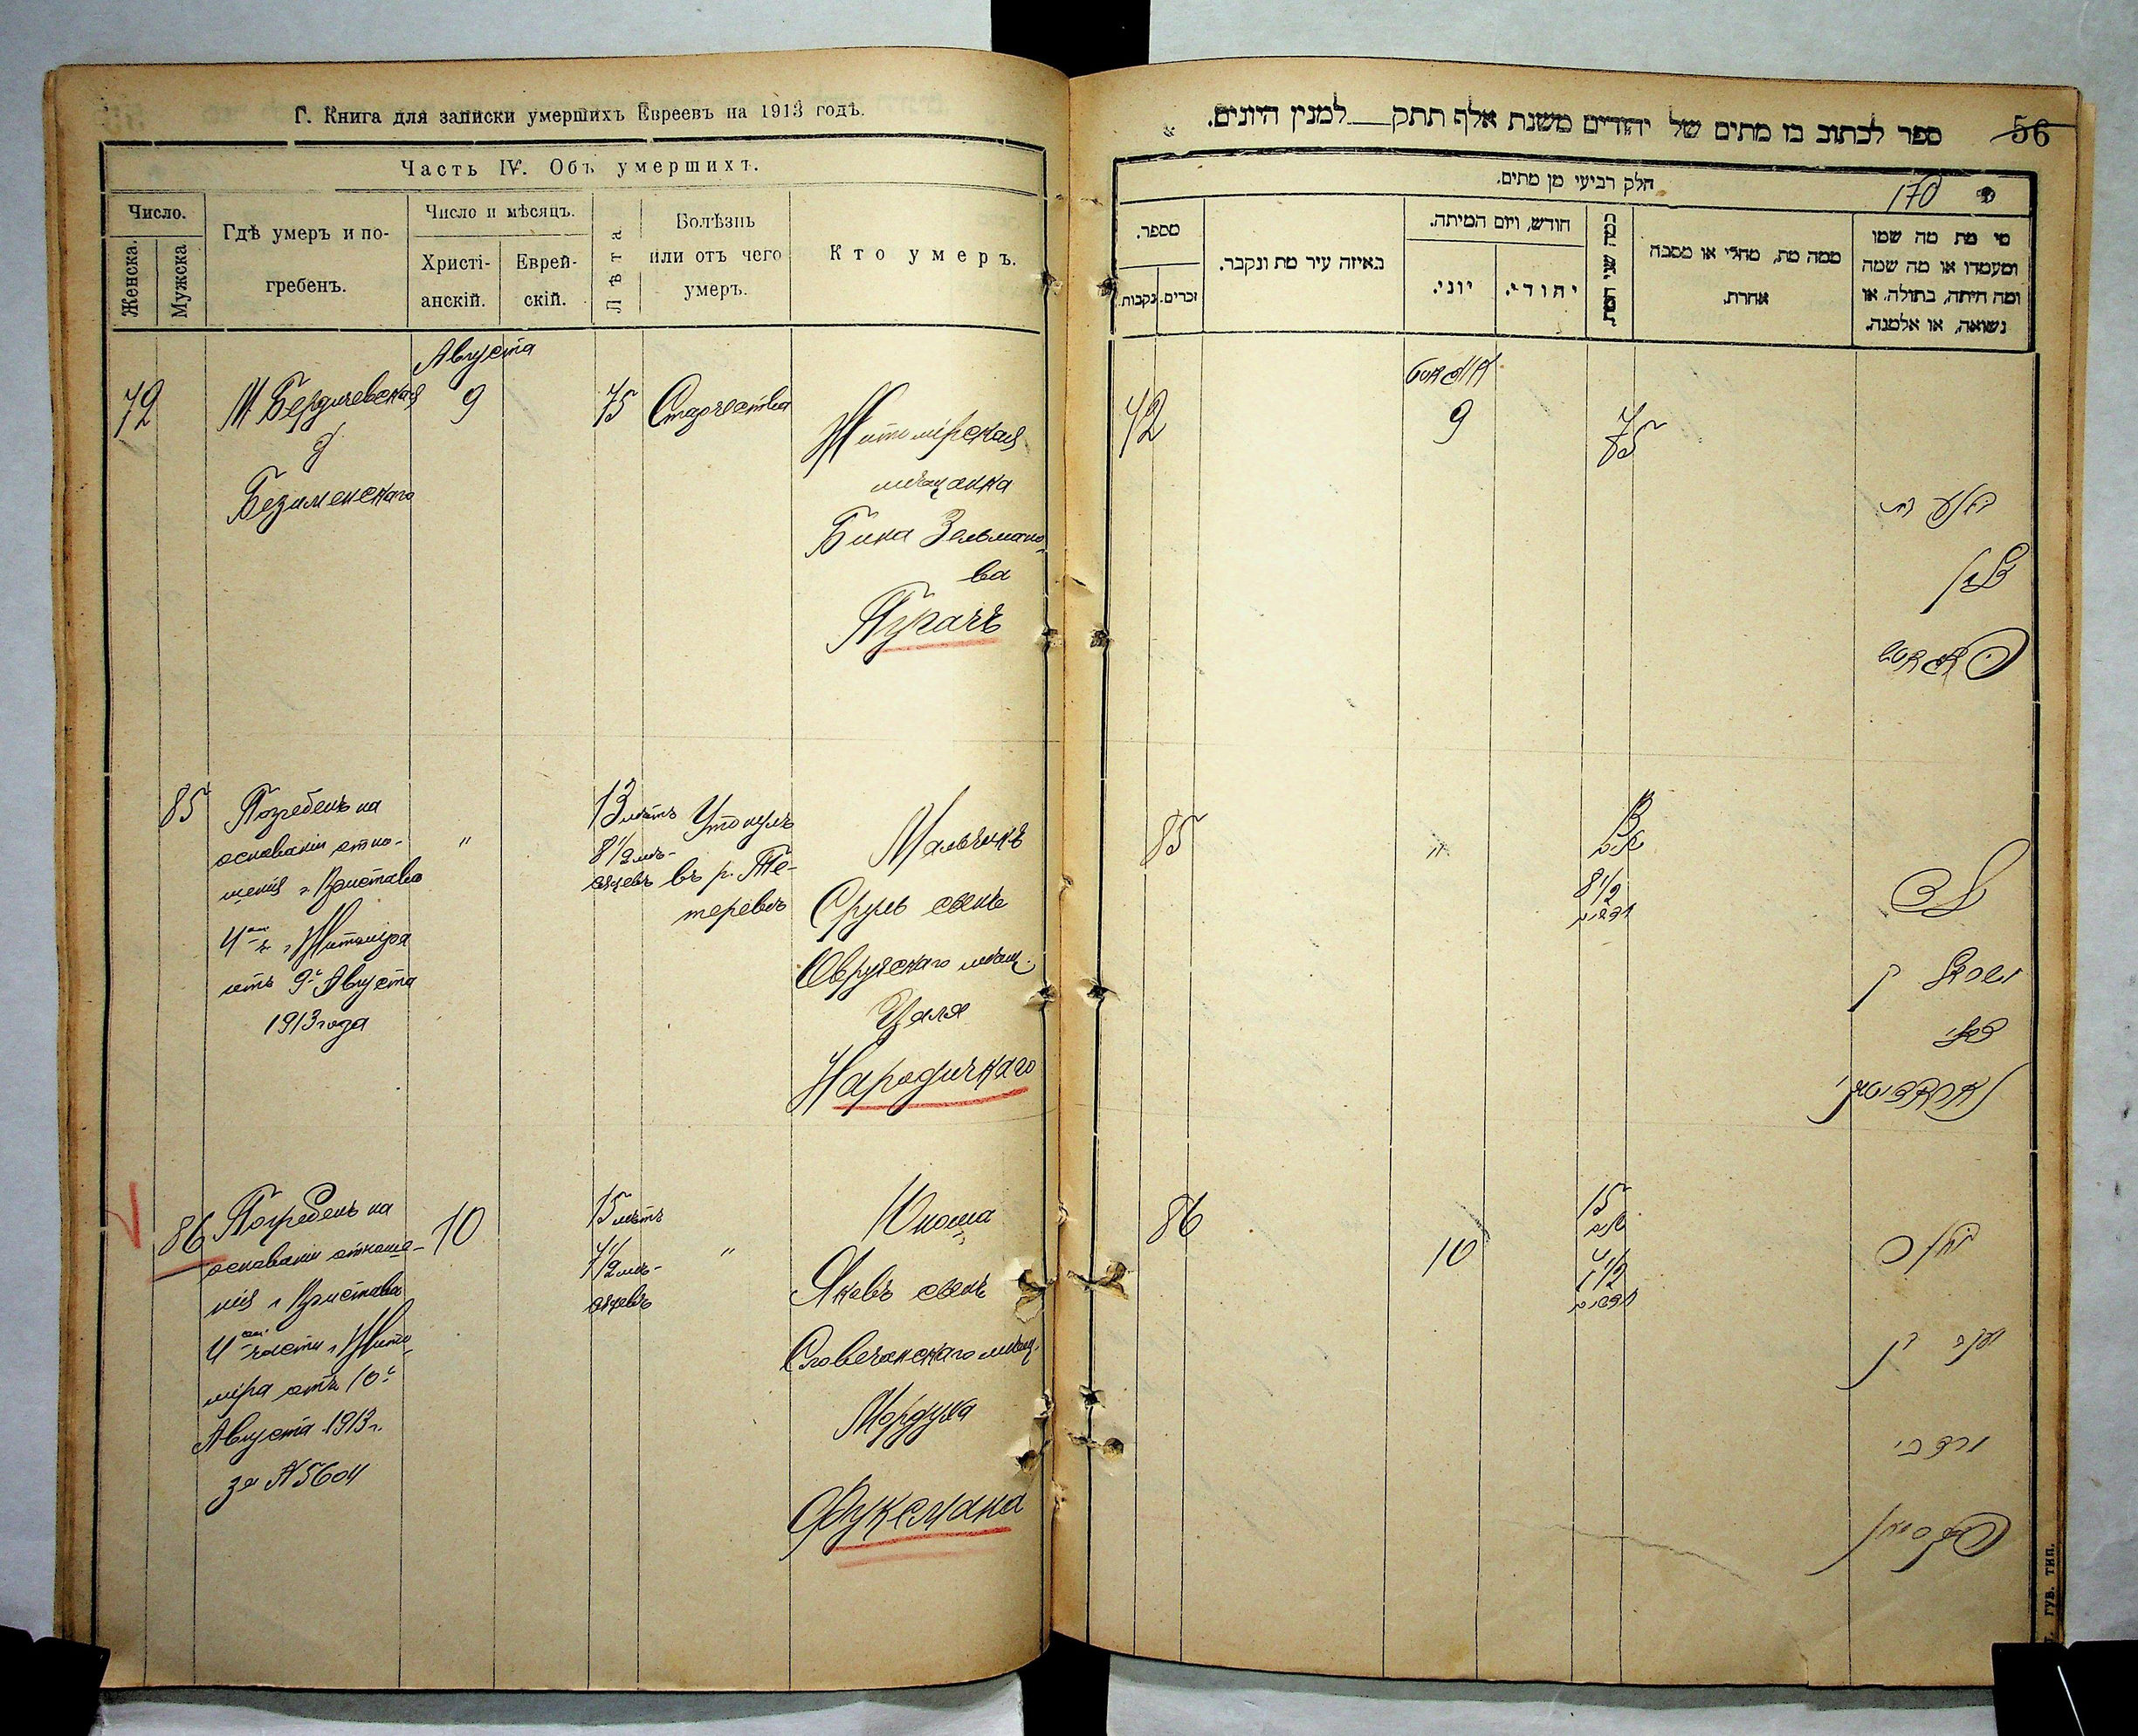 Г. Книга для записки умершихъ Евреевъ на 1913 годъ.
Часть IV. Объ умершихъ.
Число.
Женска.
Мужска
Гдѣ умеръ и по-
гребенъ.
Число и мѣсяцъ.
Христі-
анскій.
Еврей-
скій.
Лѣта
Болѣзнь
или отъ чего
умеръ.
Кто умеръ.
Августа
72
М Бердичевская
д
Безименскаго
9
75
Старчества
Житомірская
мѣщанка
Бина Зельмано-
ва
Пугачъ
85
Погребенъ на
основаніи отно-
шенія г. Пристава
4ой ч. г. Житоміра
отъ 9го Августа
1913 года
"
13 лѣтъ
8 1/2 мѣ-
сяцевъ
Утонулъ
въ р. Те-
теревъ
Мальчикъ
Сруль сынъ
Овручскаго мѣщ.
Цаля
Народичкаго
86
Погребенъ на
основаніи отноше-
нія г. Пристава
4ой части г. Жито-
міра отъ 10го
Августа 1913 г.
за № 5604
10
15 лѣтъ
7 1/2 мѣ-
сяцевъ
"
Юноша
Яковъ сынъ
Словечанскаго мѣщ.
Мордуха
Фуксмана
ספר לכתוב בו מתים של יהודים משנת אלף תתק למנין היונים.
56
170
חלק רביעי מן מתים.
מספר.
נקבות.
זכרים.
באיזה עיר מת ונקבר.
חודש, ויום המיתה.
יוני.
יהודי.
כמה שני המת
ממה מת, מחלי או מסבה
אחרת.
מי מת מה שמו
ומעמדו או מה שמה
ומה היתה, בתולה, או
נשואה, או אלמנה.
אווגוסט
72
9
75
85
"
13
שנים
8 1/2
חדשים
ילד
ישראל בן
נאראדיצקי
86
10
15
שנים
7 1/2
חדשים
בחור
יעקב בן
מרדכי
פוקסמאן
губ. тип.